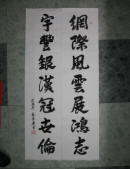 網際風雲展鴻志
宇豐銀漢冠世倫